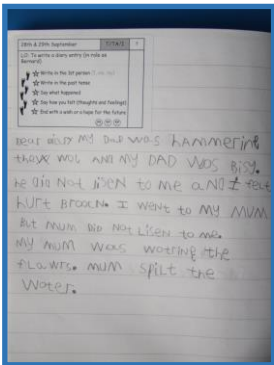 28th & 29th September
LO: To write a diary entry (in role as Bernard)
Write in the 1st person
Write in the past tense
Say what happened
Say how you felt (thoughts and feelings)
End with a wish or a hope for the future
Dear diary My Dad was hammering
the wol and MY DAD WOS BISY.
he DiD Not liSen to me aND I felt
hurt BROOCN. I weNt to MY MUM
But Mum DiD Not LiSen to me.
MY MUM WOS wotring the
fLawrs. MUM SPiLt the
Woter.